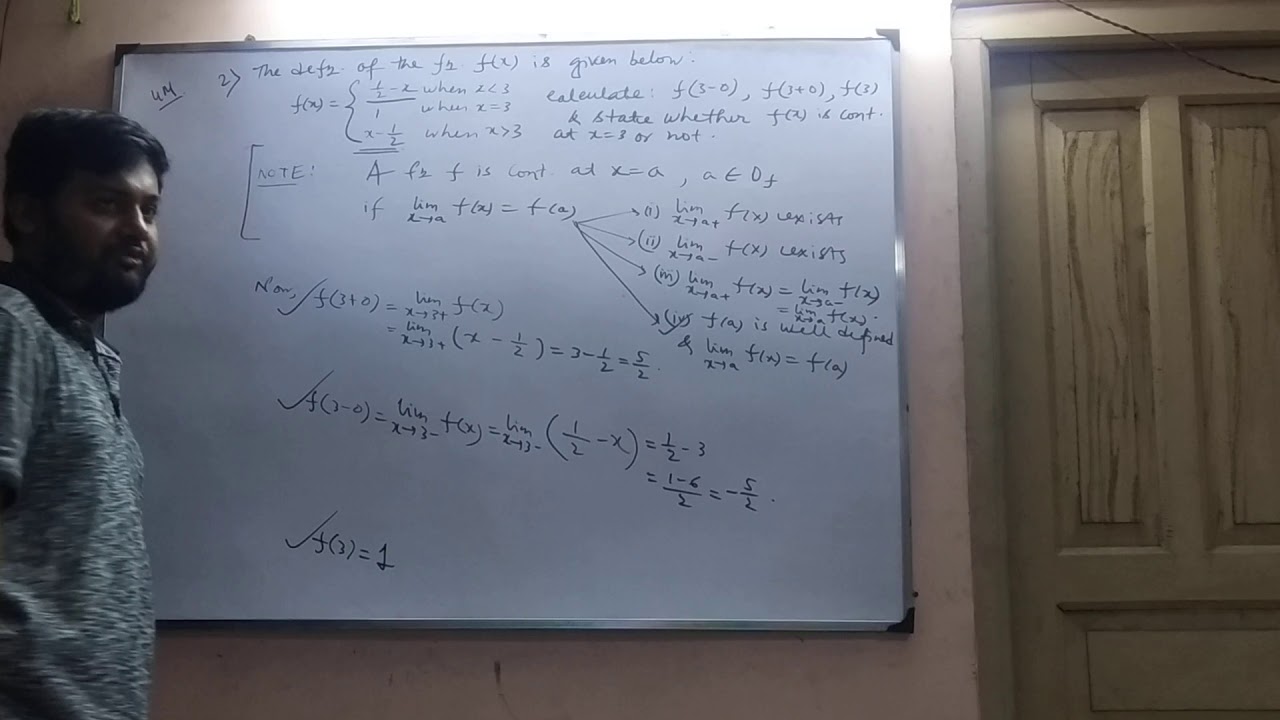 4M 2) The defn. of the fn. f(x) is given below:
f(x) = { 1/2 - x when x < 3 calculate: f(3-0), f(3+0), f(3)
1 when x = 3 & state whether f(x) is cont.
x - 1/2 when x > 3 at x=3 or not.
NOTE: A fn f is cont. at x=a, a ∈ Df
if lim x→a f(x) = f(a) (i) lim x→a+ f(x) exists
(ii) lim x→a- f(x) exists
(iii) lim x→a+ f(x) = lim x→a- f(x)
= lim x→a f(x).
(iv) f(a) is well defined
& lim x→a f(x) = f(a)
Now, ✓f(3+0) = lim x→3+ f(x)
= lim x→3+ (x - 1/2) = 3 - 1/2 = 5/2.
✓f(3-0) = lim x→3- f(x) = lim x→3- (1/2 - x) = 1/2 - 3
= 1-6/2 = -5/2.
✓f(3) = 1